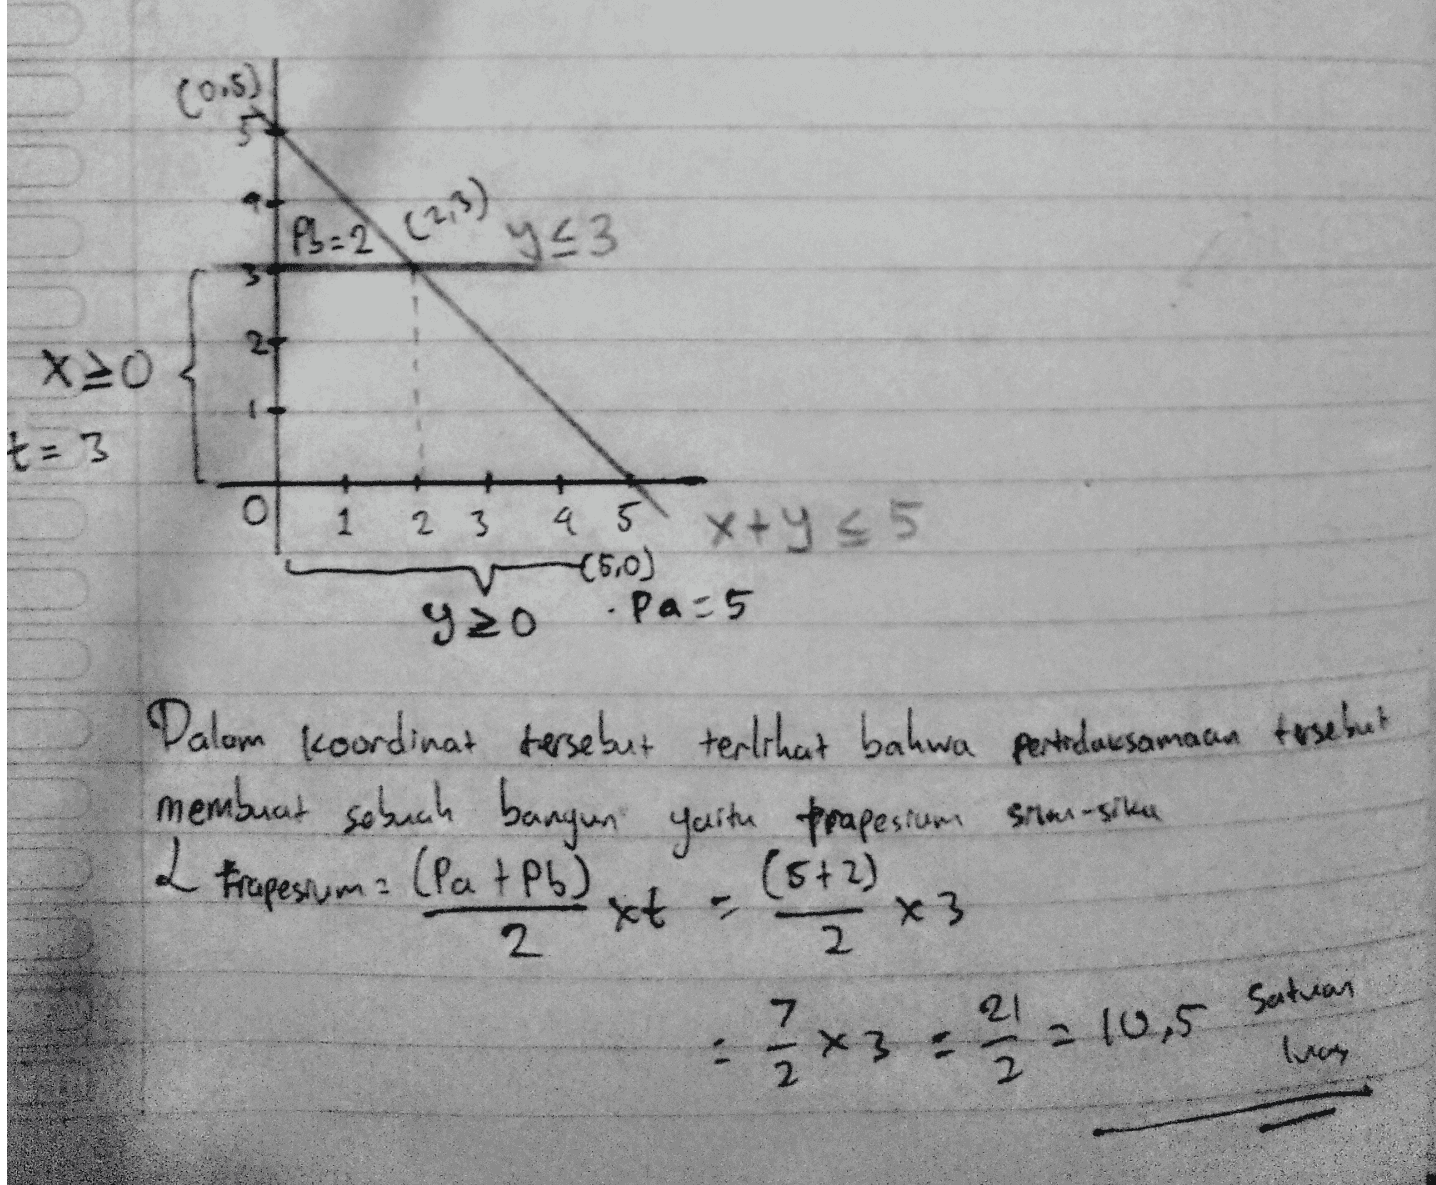 (0,5)
5
4
Pb=2 (2,3) y≤3
3
2
x≥0
1
t=3
0 1 2 3 4 5 x+y≤5
(5,0)
y≥0 . Pa=5
Dalam koordinat tersebut terlihat bahwa pertidaksamaan tersebut
membuat sebuah bangun yaitu trapesium siku-siku
L trapesium = (Pa+Pb)/2 xt = (5+2)/2 x 3
= 7/2 x 3 = 21/2 = 10,5 satuan
luas